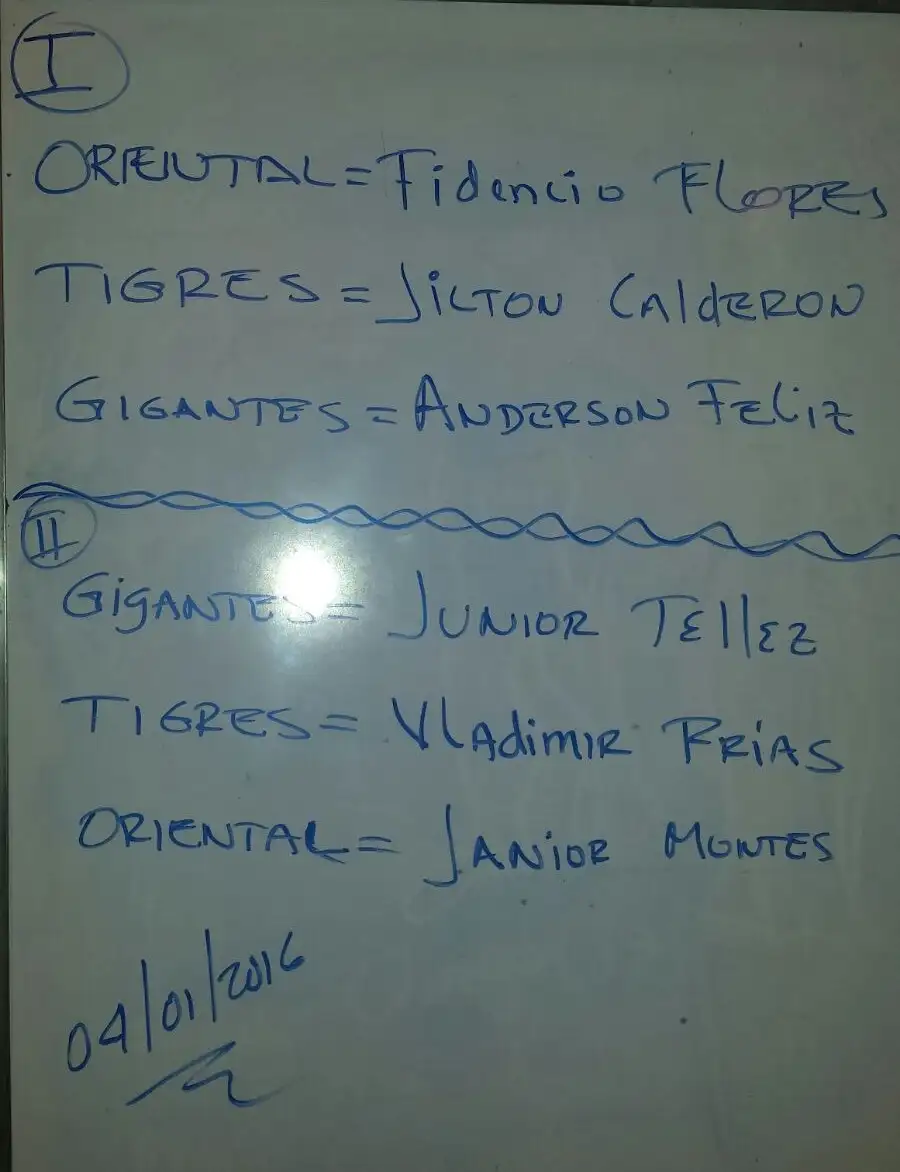 I
ORIENTAL = Fidencio FLORES
TIGRES = JiLTON CAldERON
GIGANTES = ANDERSON FELiz
II
GiGANTES = JUNIOR TEllEz
TIGRES = VlAdimiR FRiAS
ORIENTAL = JANiOR MONTES
04/01/2016